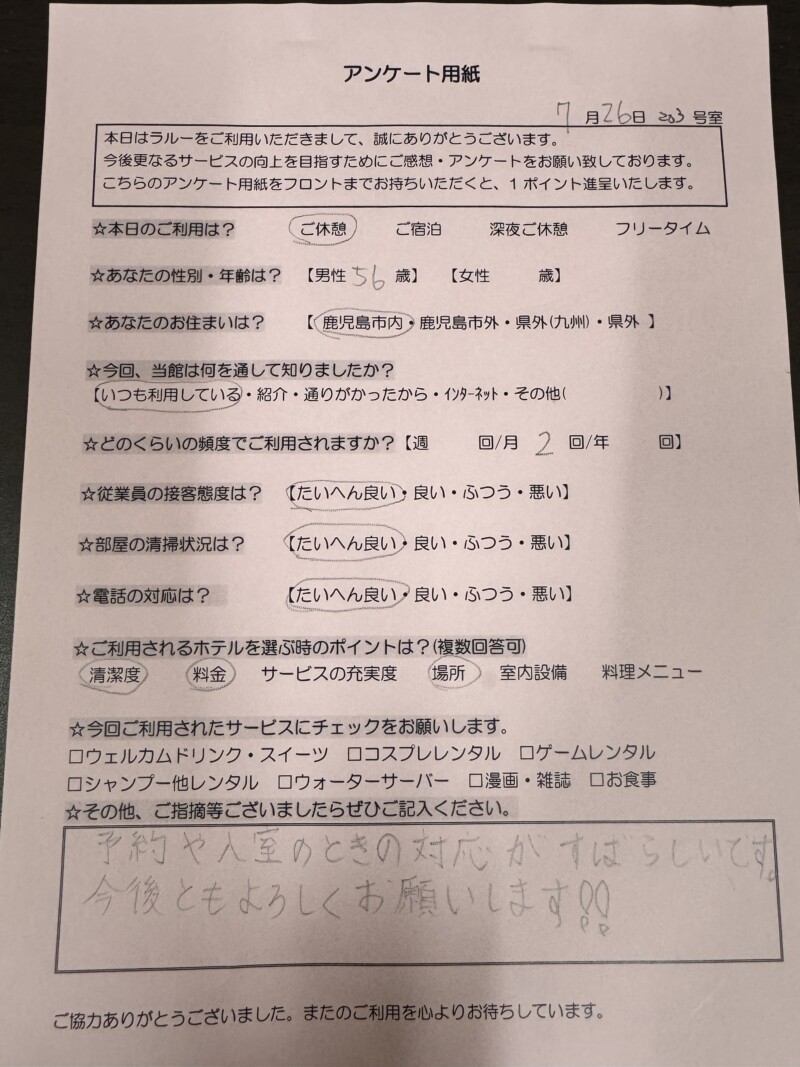 アンケート用紙
7月26日 203号室
本日はラルーをご利用いただきまして、誠にありがとうございます。
今後更なるサービスの向上を目指すためにご感想・アンケートをお願い致しております。
こちらのアンケート用紙をフロントまでお持ちいただくと、1ポイント進呈いたします。
☆本日のご利用は? ご休憩 ご宿泊 深夜ご休憩 フリータイム
☆あなたの性別・年齢は? 【男性 56 歳】 【女性 歳】
☆あなたのお住まいは? 【鹿児島市内・鹿児島市外・県外(九州)・県外】
☆今回、当館は何を通して知りましたか?
【いつも利用している・紹介・通りがかったから・ｲﾝﾀｰﾈｯﾄ・その他( )】
☆どのくらいの頻度でご利用されますか?【週 回/月 2 回/年 回】
☆従業員の接客態度は? 【たいへん良い・良い・ふつう・悪い】
☆部屋の清掃状況は? 【たいへん良い・良い・ふつう・悪い】
☆電話の対応は? 【たいへん良い・良い・ふつう・悪い】
☆ご利用されるホテルを選ぶ時のポイントは?(複数回答可)
清潔度 料金 サービスの充実度 場所 室内設備 料理メニュー
☆今回ご利用されたサービスにチェックをお願いします。
□ウェルカムドリンク・スイーツ □コスプレレンタル □ゲームレンタル
□シャンプー他レンタル □ウォーターサーバー □漫画・雑誌 □お食事
☆その他、ご指摘等ございましたらぜひご記入ください。
予約や入室のときの対応がすばらしいです。
今後ともよろしくお願いします!!
ご協力ありがとうございました。またのご利用を心よりお待ちしています。